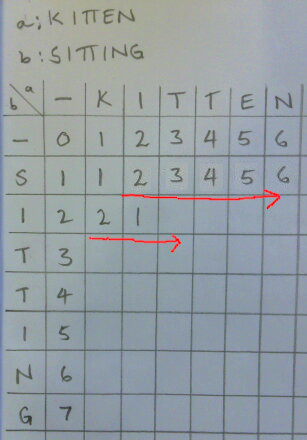 a: KITTEN
b: SITTING
b a – K I T T E N
– 0 1 2 3 4 5 6
S 1 1 2 3 4 5 6
I 2 2 1
T 3
T 4
I 5
N 6
G 7